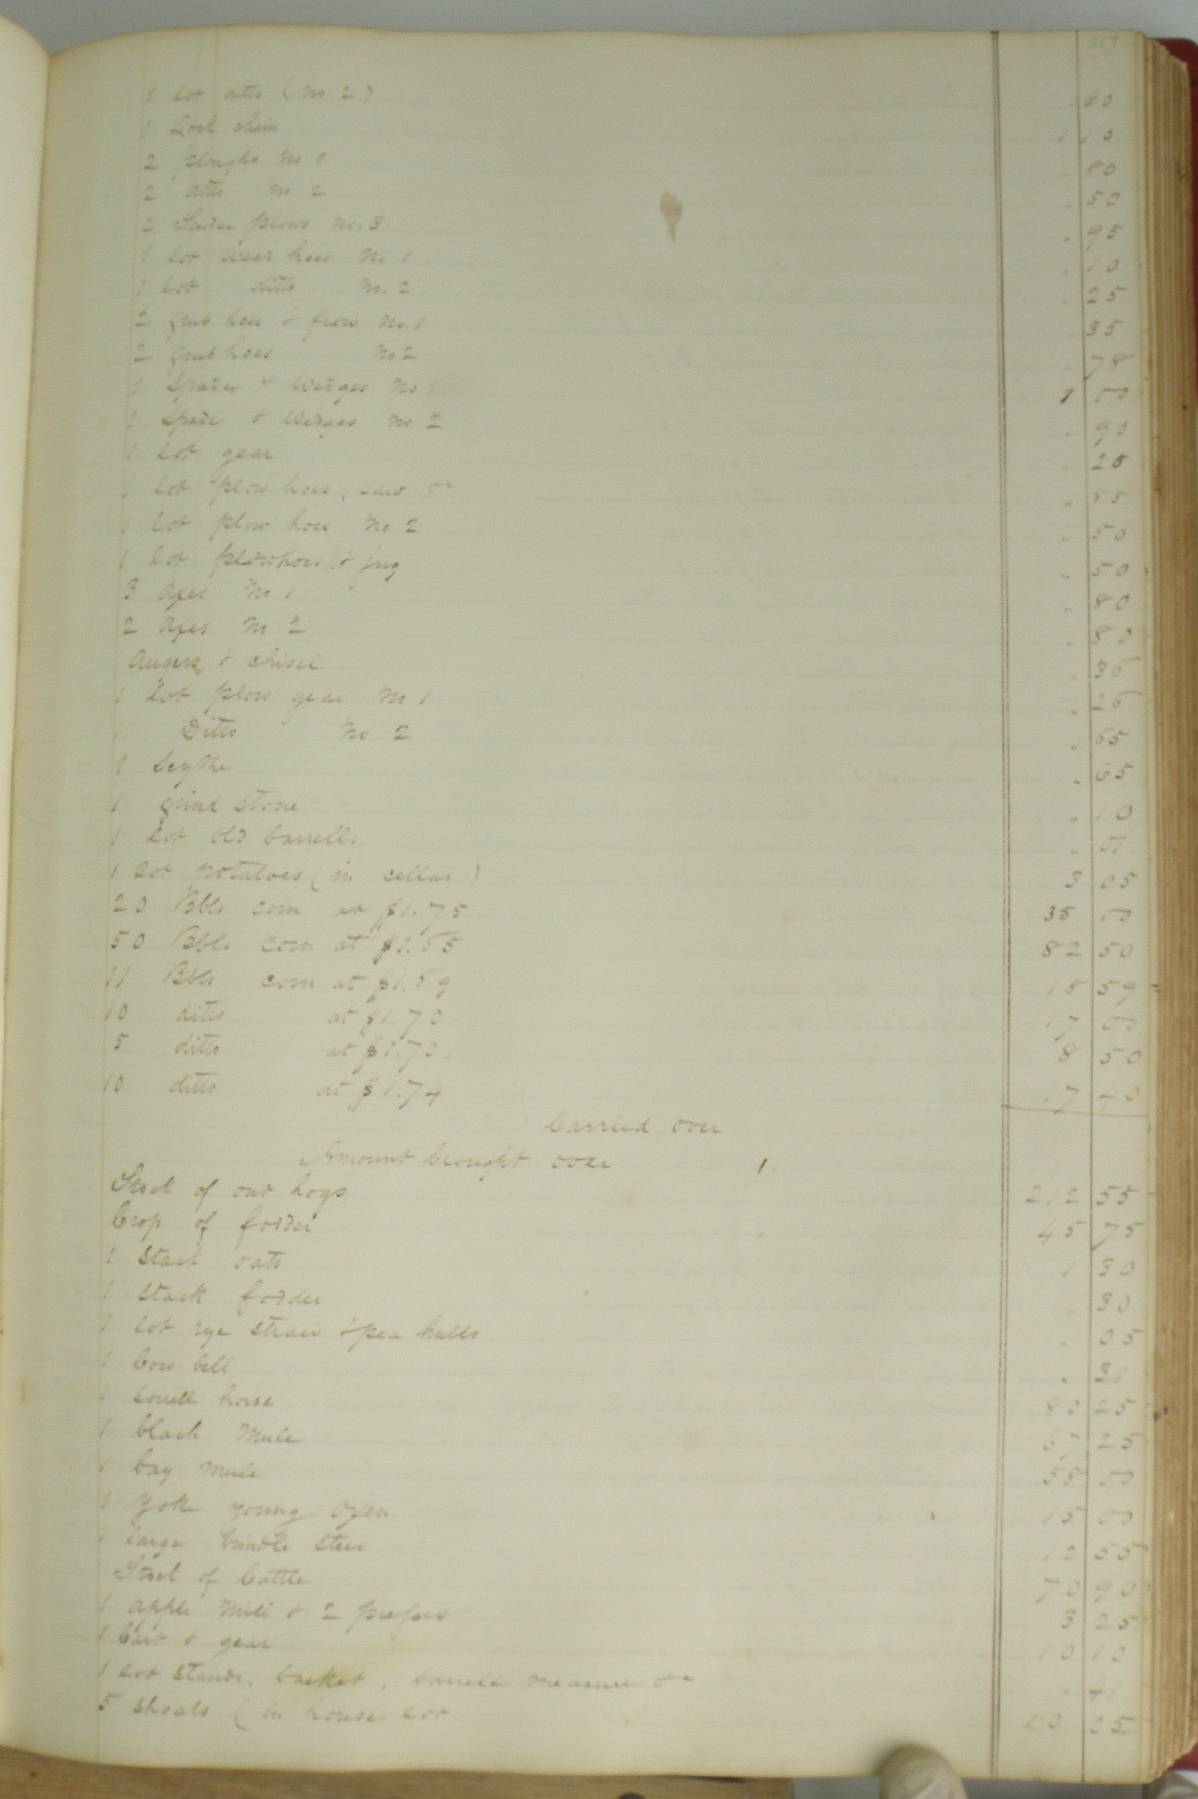 1 Lot ditto (No 2) . 60
1 Lock chain 1 10
2 ploughs No 1 . 80
2 ditto No 2 . 50
2 plows No. 3 . 95
1 lot weed hoes No. 1 . 10
1 lot ditto No. 2 . 25
2 grub hoes & frow No. 1 . 35
2 grub hoes No 2 . 78
1 Spade & wedges No 1 1 00
1 Spade & wedges No 2 . 90
1 lot gear . 25
1 lot plow hoes, saw &c . 85
1 lot plow hoes No 2 . 50
1 lot plowhoes & jug . 50
3 axes No 1 . 80
2 axes No 2 . 80
augers & chisel . 36
1 lot plow gear No 1 . 26
1 Ditto No 2 . 65
1 Scythe . 65
1 grind stone . 10
1 lot old barrells .
1 lot potatoes (in cellar) 3 05
20 Bbls corn at $1.75 35 00
50 Bbls corn at $1.65 82 50
11 Bbls corn at $1.69 18 59
10 ditto at $1.70 17 00
5 ditto at $1.70. 8 50
10 ditto at $1.74 17 40
Carried over
Amount brought over
Stock of out hogs 212 55
Crop of fodder 45 75
1 stack oats 1 30
1 stack fodder . 30
1 lot rye straw & pea hulls . 05
1 Cow bell . 31
1 sorrell horse 80 25
1 black mule 67 25
1 bay mule 55 00
1 Yoke young oxen 15 00
1 large brindle steer 12 55
Stock of Cattle 70 90
1 apple mill & 2 presses 3 25
1 Cart & gear 10 10
1 lot stands, basket, barrell measure &c . 41
5 shoats (in house lot 05